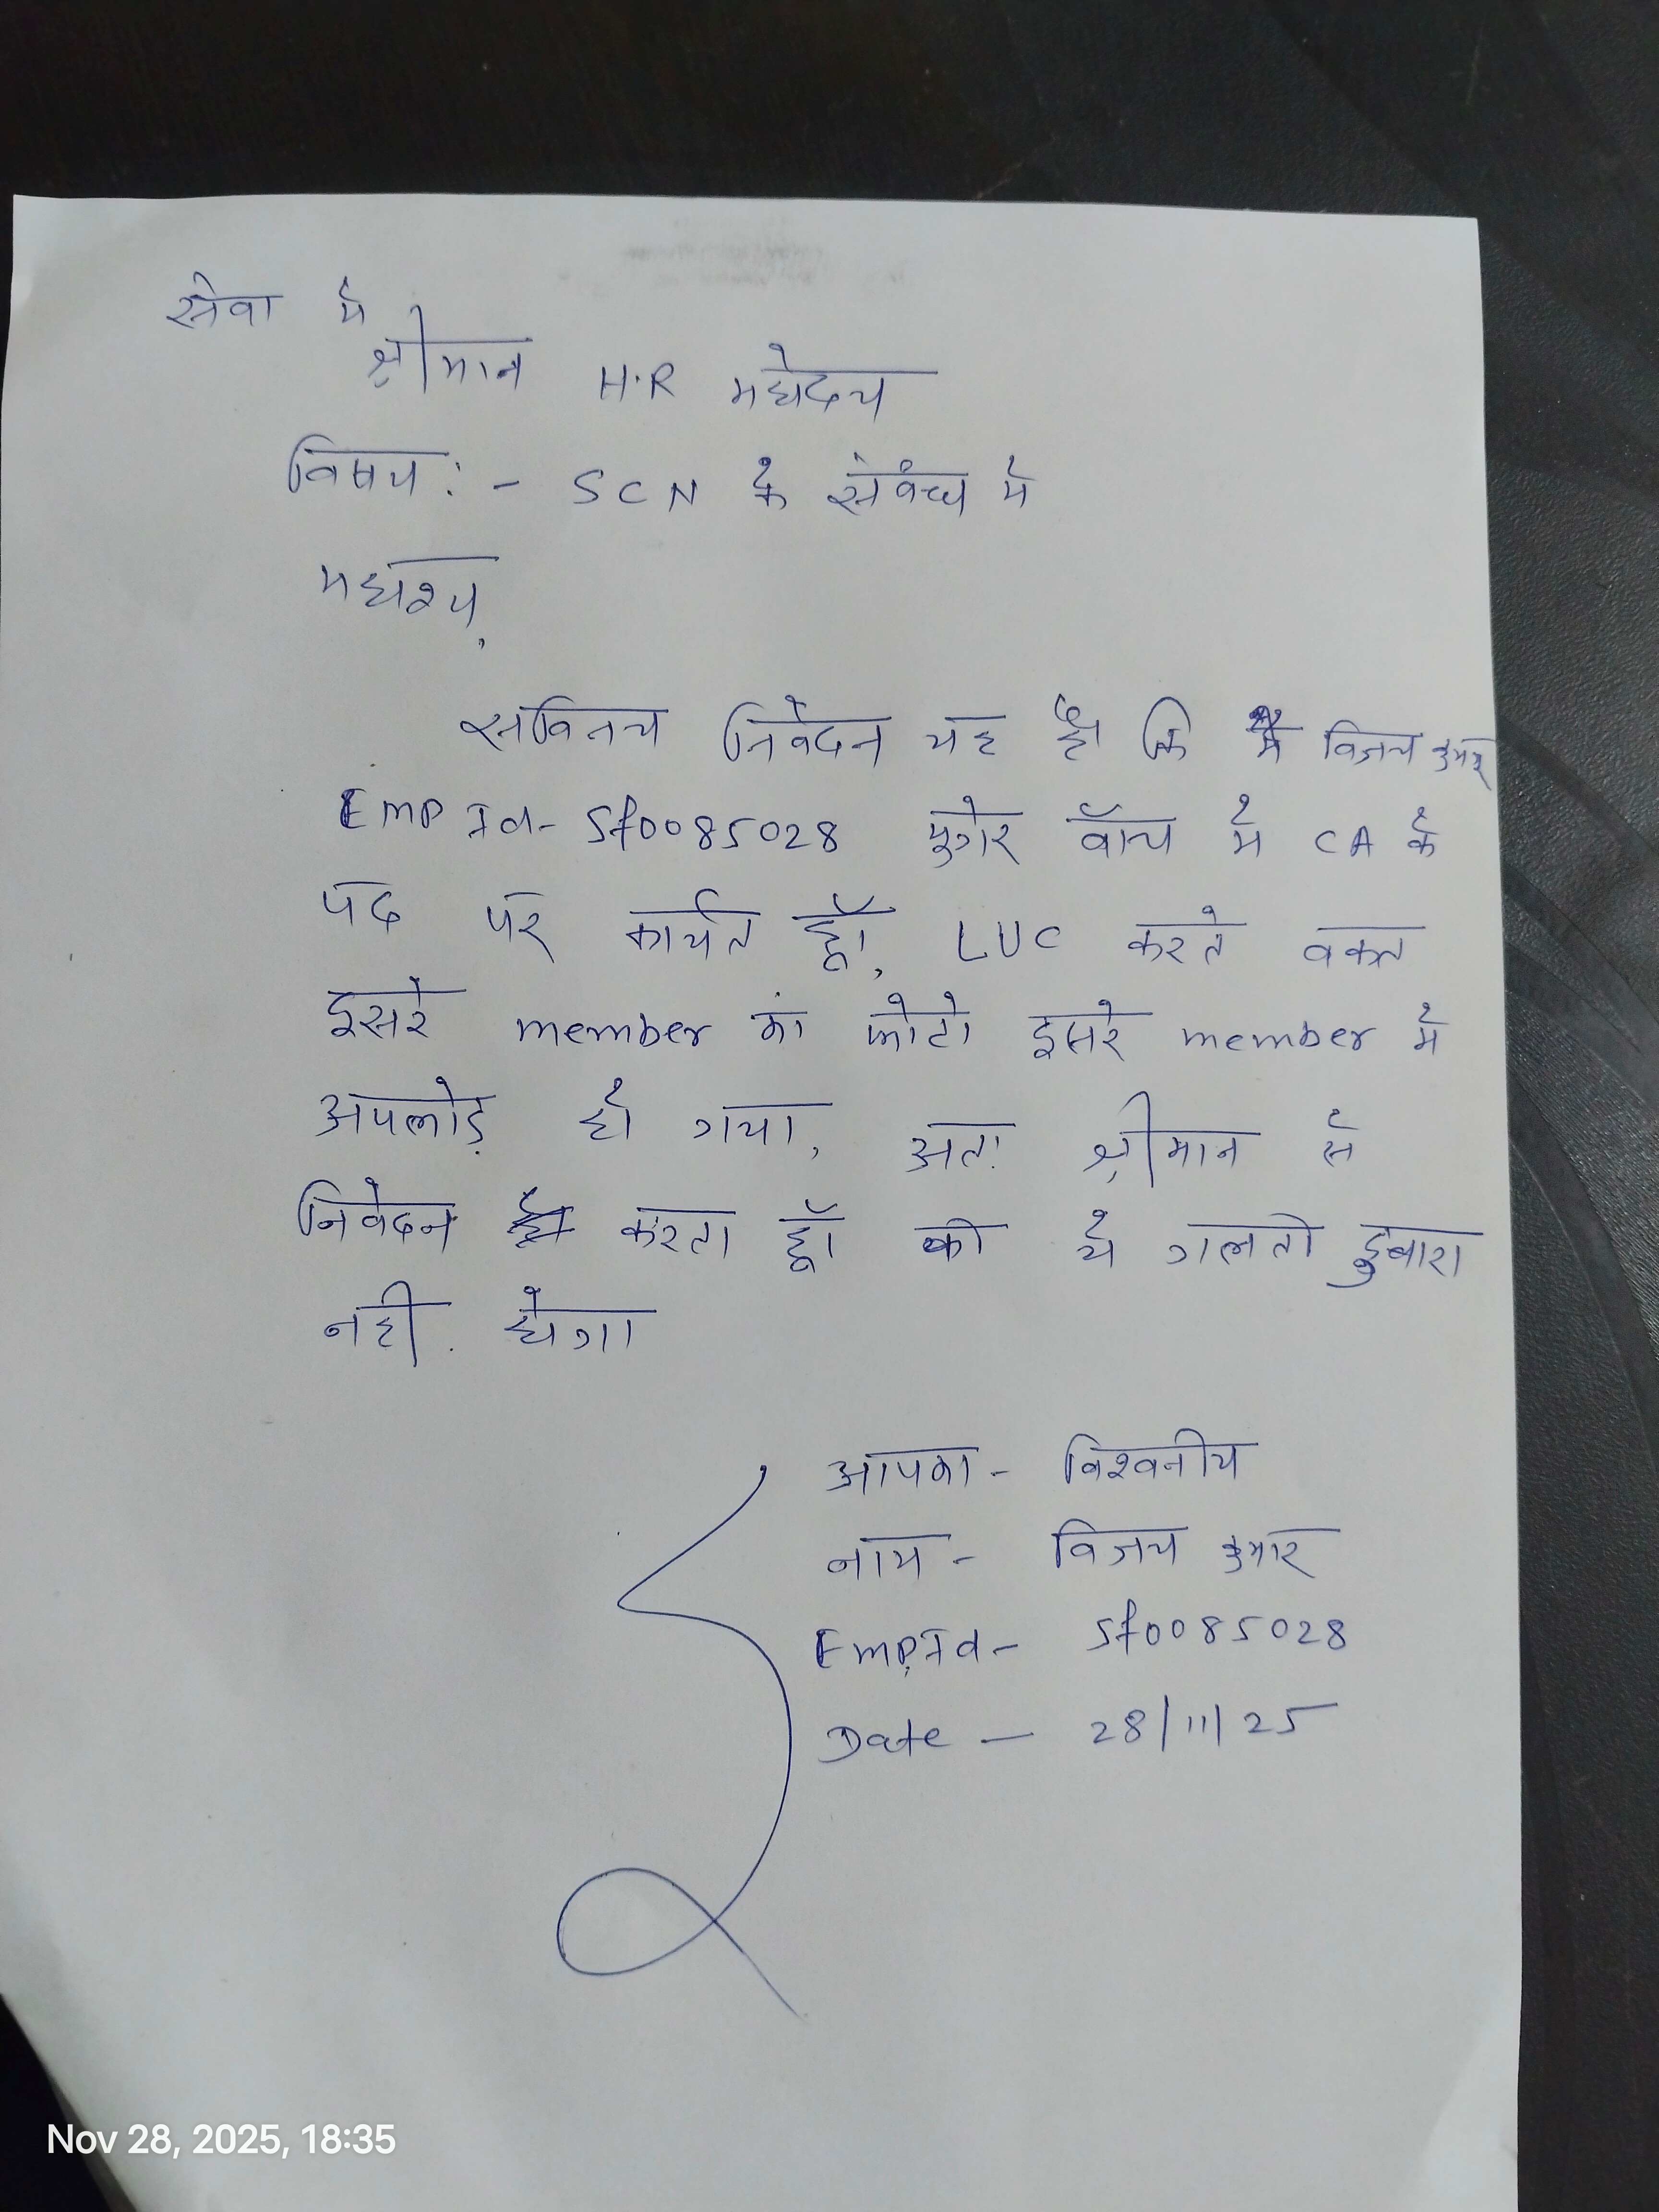 सेवा में
श्रीमान H.R महोदय
विषय:- SCN के संबंध में
महाशय,
सविनय निवेदन यह है कि मैं विजय कुमार
EMP Id- Sf0085028 मुंगेर ब्रॉच में CA के
पद पर कार्यत हूॅ, LUC करते वक्त
दुसरे member का फोटो दुसरे member में
अपलोड़ हो गया, अतः श्रीमान से
निवेदन करता हूॅ की ये गलती दुबारा
नही होगा
आपका - विश्वनीय
नाम - विजय कुमार
EMP Id - Sf0085028
Date - 28/11/25
Nov 28, 2025, 18:35